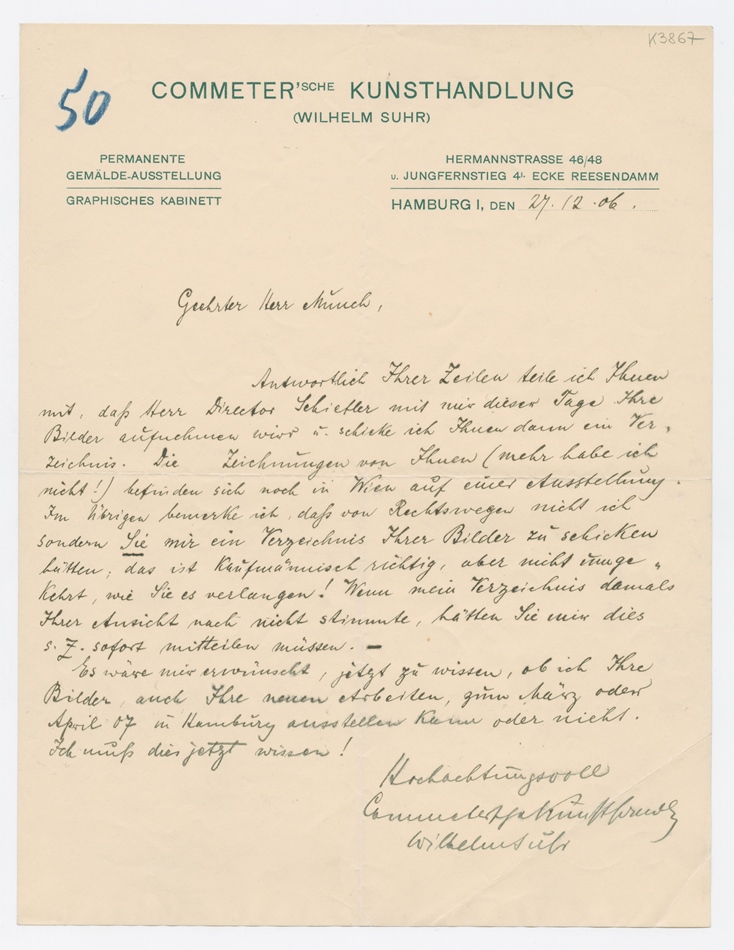 K3867
50
COMMETER'SCHE KUNSTHANDLUNG
(WILHELM SUHR)
PERMANENTE
GEMÄLDE-AUSSTELLUNG
GRAPHISCHES KABINETT
HERMANNSTRASSE 46/48
u. JUNGFERNSTIEG 4I. ECKE REESENDAMM
HAMBURG I, DEN 27.12.06.
Geehrter Herr Munch,
Antwortlich Ihrer Zeilen teile ich Ihnen
mit, daß Herr Director Schiefler mit mir dieser Tage Ihre
Bilder aufnehmen wird u. schicke ich Ihnen dann ein Ver-
zeichnis. Die Zeichnungen von Ihnen (mehr habe ich
nicht!) befinden sich noch in Wien auf einer Ausstellung.
Im Übrigen bemerke ich, daß von Rechtswegen nicht ich
sondern Sie mir ein Verzeichnis Ihrer Bilder zu schicken
hätten; das ist kaufmännisch richtig, aber nicht umge-
kehrt, wie Sie es verlangen! Wenn mein Verzeichnis damals
Ihrer Ansicht nach nicht stimmte, hätten Sie mir dies
s. Z. sofort mitteilen müssen. —
Es wäre mir erwünscht, jetzt zu wissen, ob ich Ihre
Bilder, auch Ihre neuen Arbeiten, zum März oder
April 07 in Hamburg ausstellen kann oder nicht.
Ich muß dies jetzt wissen!
Hochachtungsvoll
Commeter'sche Kunsthandlg
Wilhelm Suhr